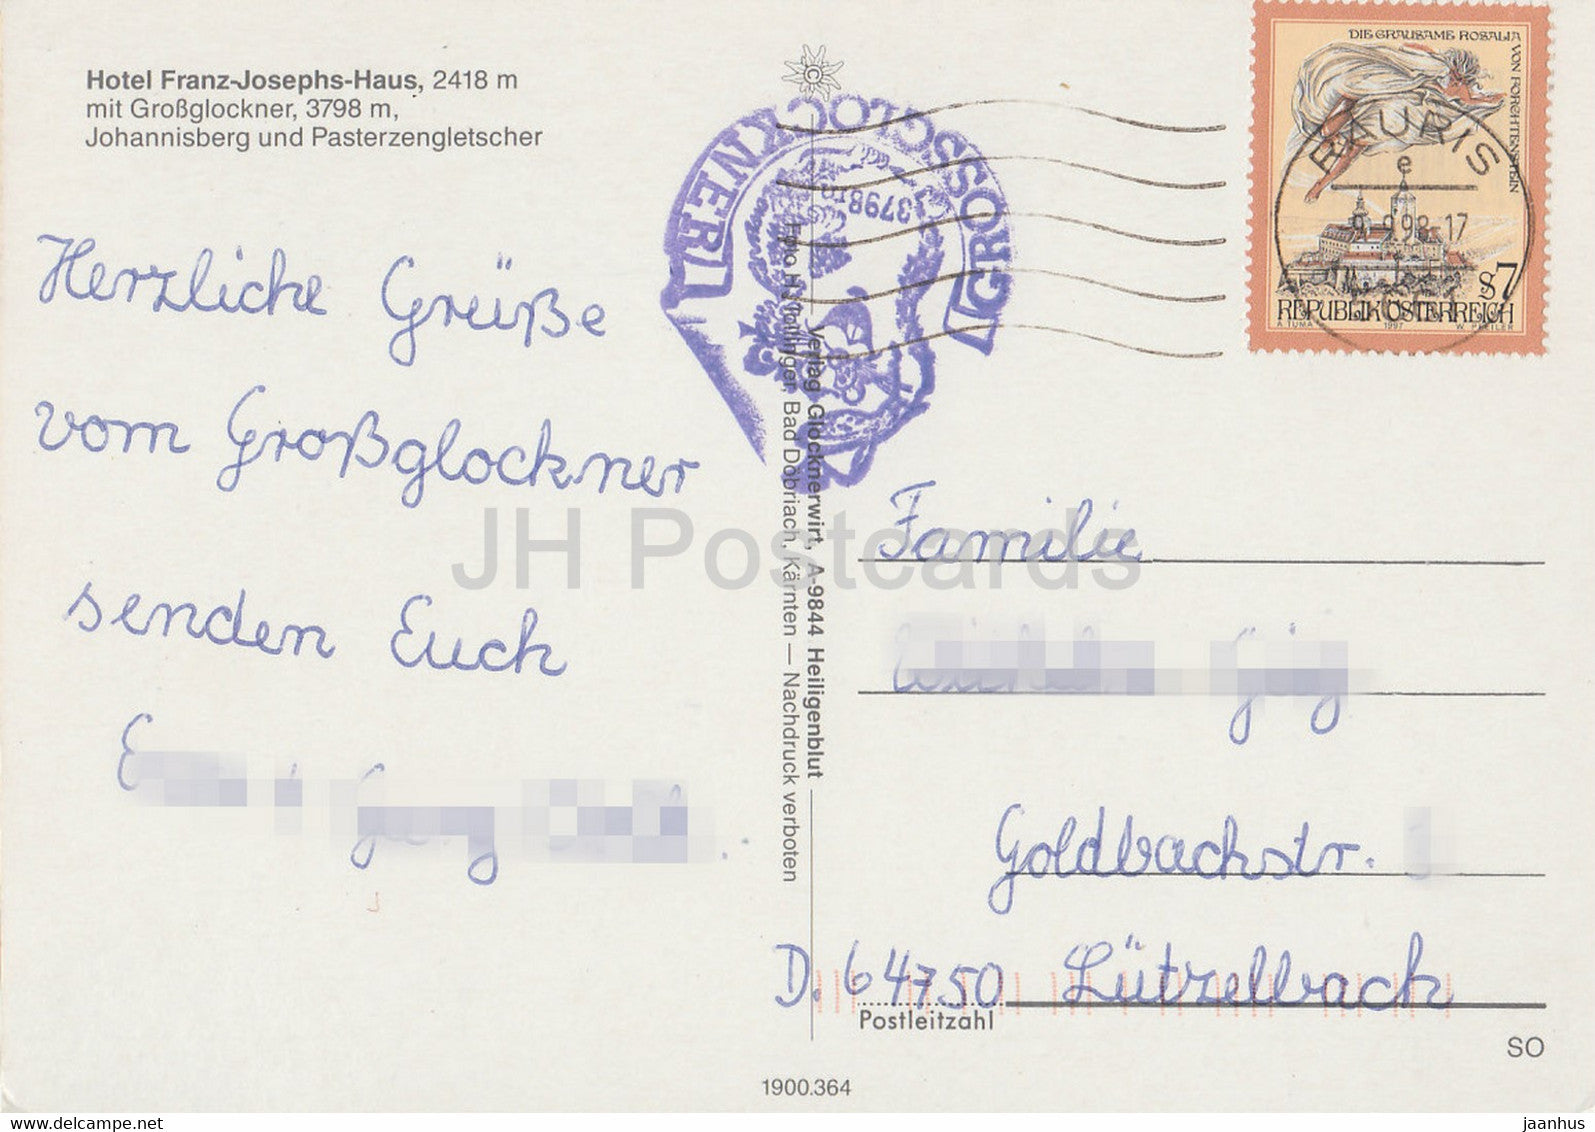 Hotel Franz-Josephs-Haus, 2418 m
mit Großglockner, 3798 m,
Johannisberg und Pasterzengletscher
Herzliche Grüße
vom Großglockner
senden Euch
GROSSGLOCKNER
3798 m
Verlag Glocknerwirt, A-9844 Heiligenblut
Bad Döbriach, Kärnten — Nachdruck verboten
DIE GRAUSAME ROSALIA
VON FORCHTENSTEIN
RAURIS
e
98-17
S7
REPUBLIK ÖSTERREICH
A TUMA 1997 W. PFEILER
Familie
Goldbachstr.
D. 64750 Lützelbach
Postleitzahl
SO
1900.364
JH Postcards
jaanhus